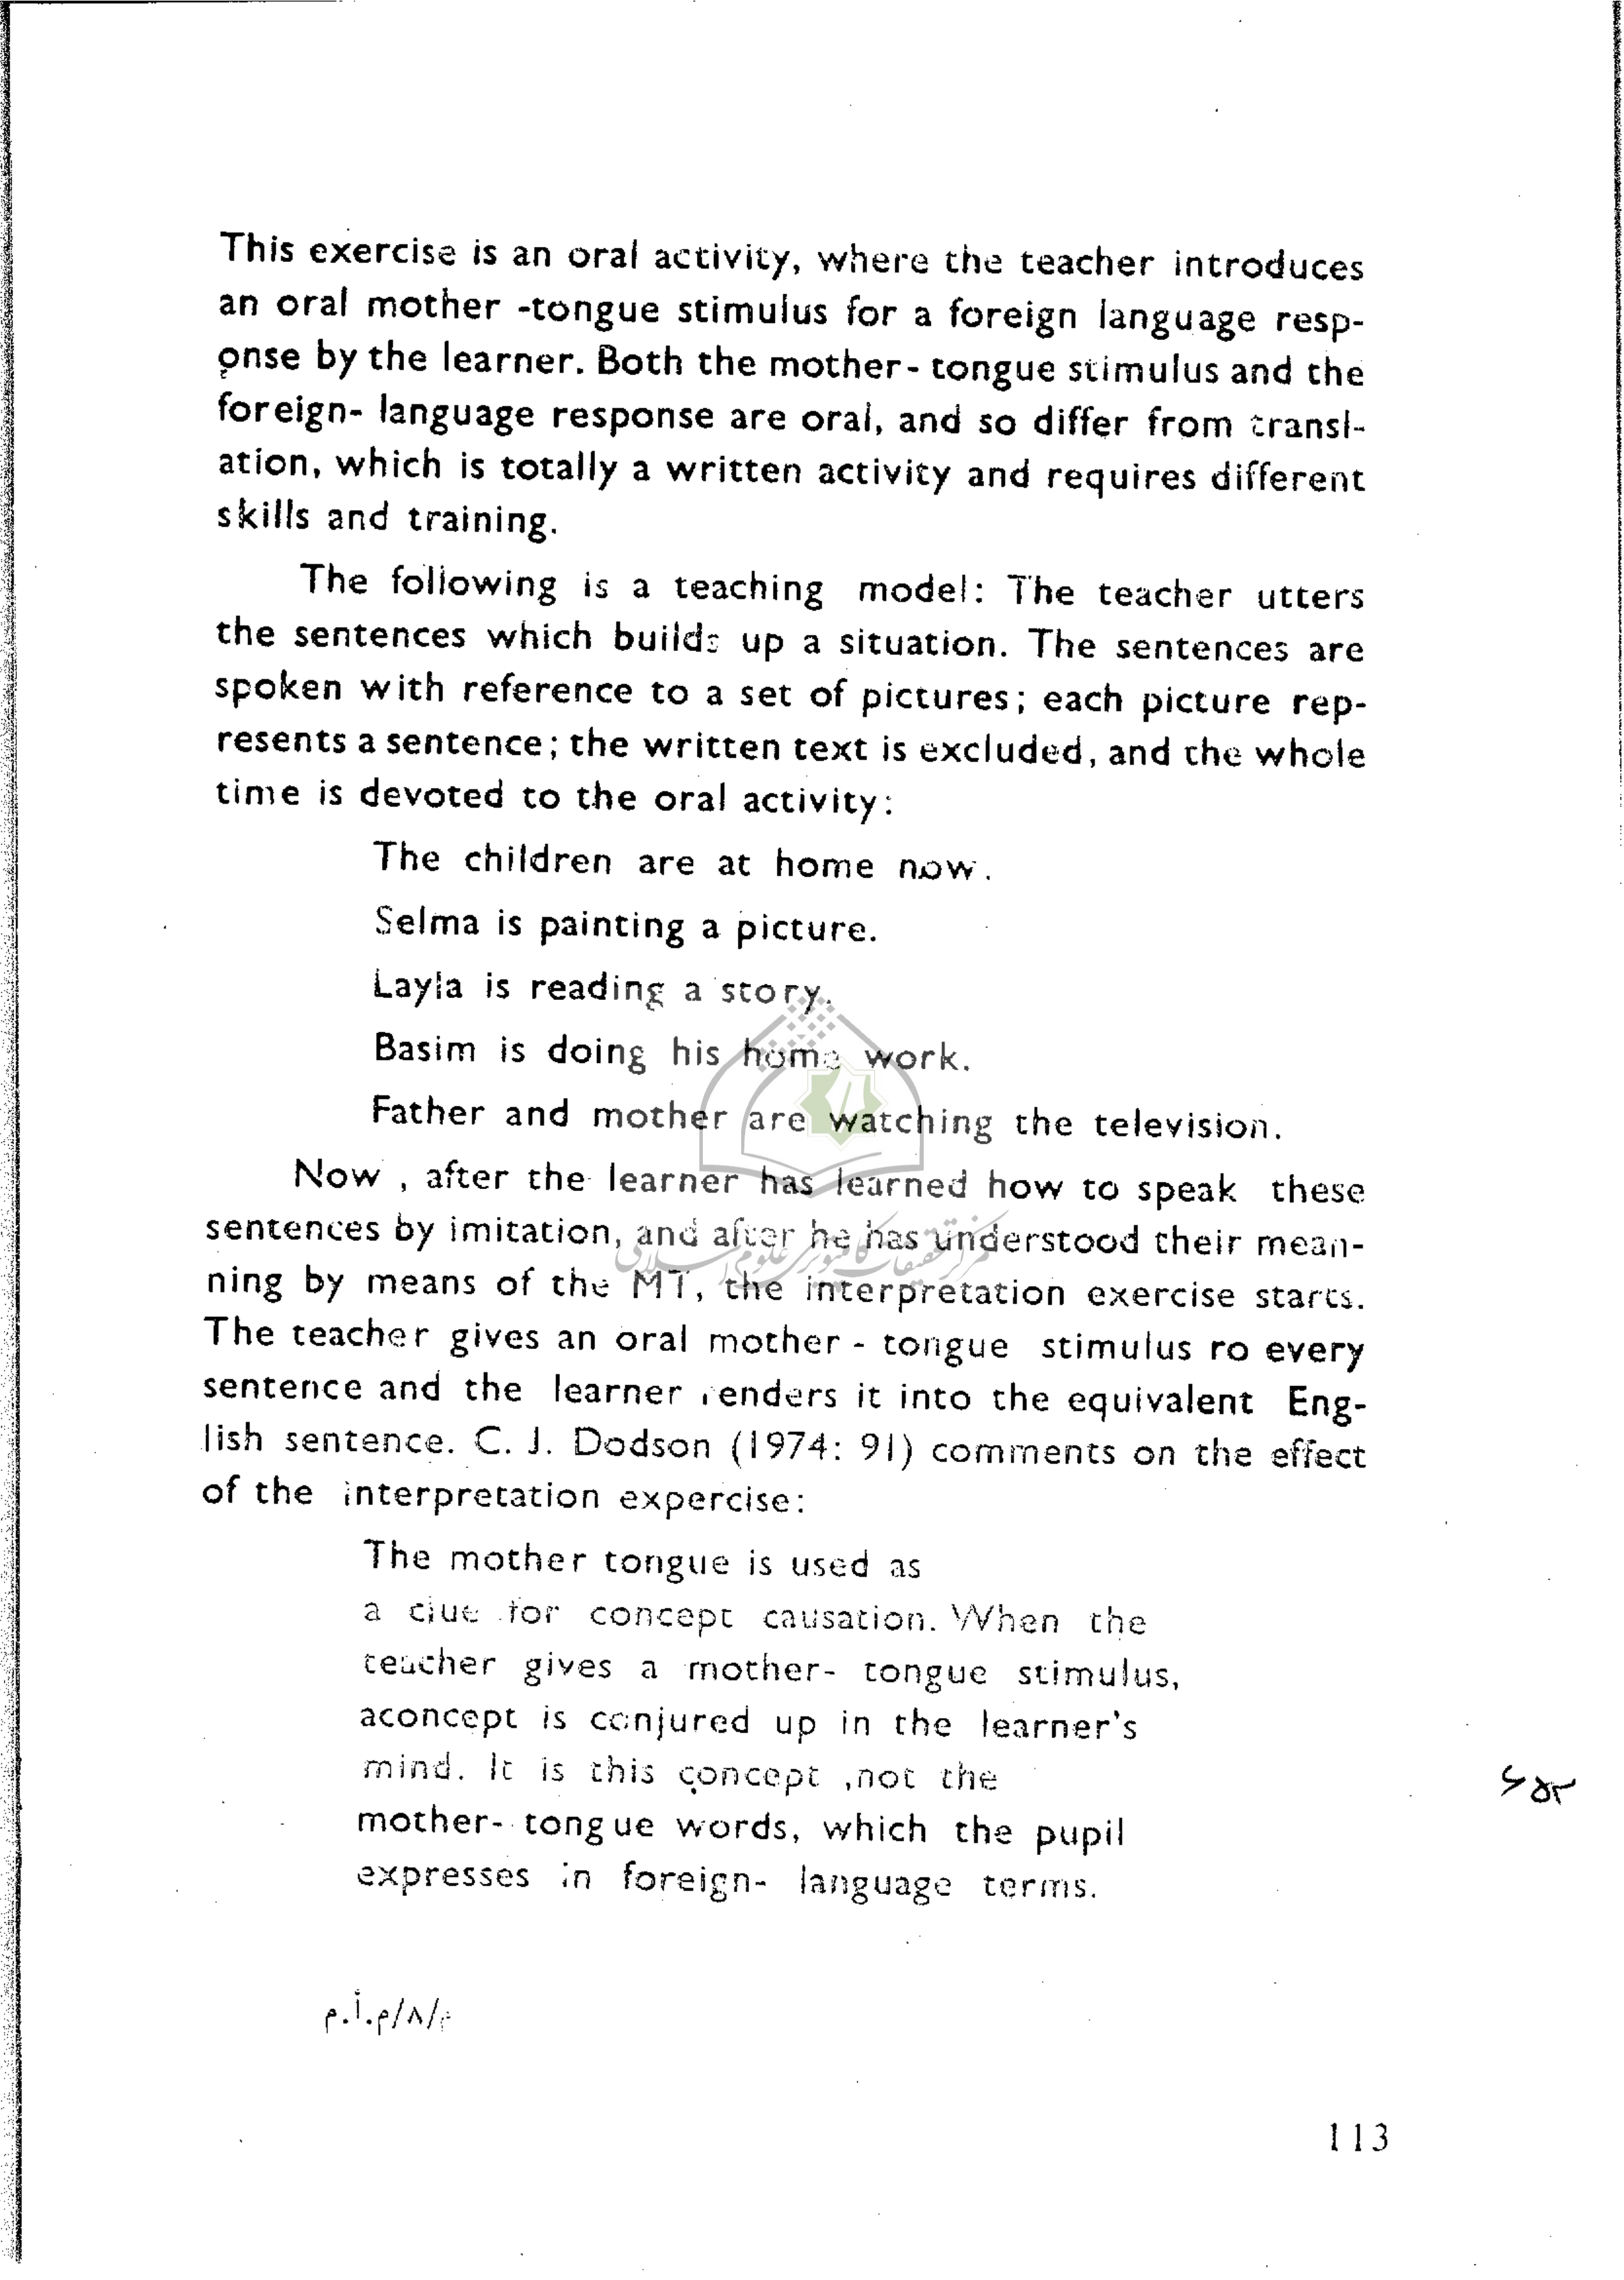 This exercise is an oral activity, where the teacher introduces
an oral mother -tongue stimulus for a foreign language resp-
onse by the learner. Both the mother- tongue stimulus and the
foreign- language response are oral, and so differ from transl-
ation, which is totally a written activity and requires different
skills and training.
The following is a teaching model: The teacher utters
the sentences which builds up a situation. The sentences are
spoken with reference to a set of pictures; each picture rep-
resents a sentence; the written text is excluded, and the whole
time is devoted to the oral activity:
The children are at home now.
Selma is painting a picture.
Layla is reading a story.
Basim is doing his home work.
Father and mother are watching the television.
Now , after the learner has learned how to speak these
sentences by imitation, and after he has understood their mean-
مرکز تحقیقات کامپیوتری علوم اسلامی
ning by means of the MT, the interpretation exercise starts.
The teacher gives an oral mother - tongue stimulus ro every
sentence and the learner renders it into the equivalent Eng-
lish sentence. C. J. Dodson (1974: 91) comments on the effect
of the interpretation expercise:
The mother tongue is used as
a clue for concept causation. When the
teacher gives a mother- tongue stimulus,
aconcept is conjured up in the learner's
mind. It is this concept ,not the
mother- tongue words, which the pupil
expresses in foreign- language terms.
م/٨/م.أ.م
113